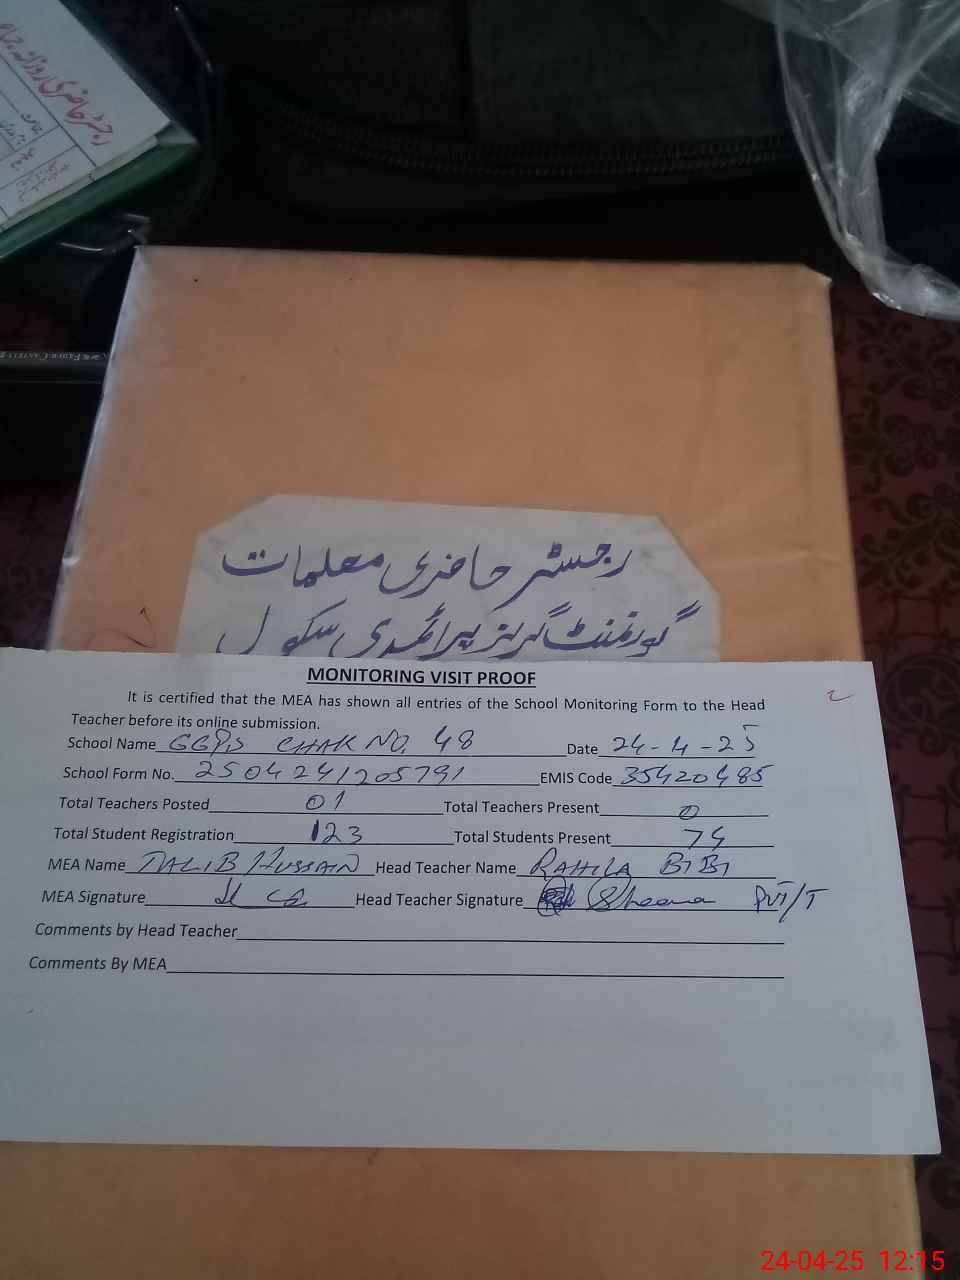 رجسٹر حاضری روزانہ
رجسٹر حاضری معلمات
گورنمنٹ گرلز پرائمری سکول
MONITORING VISIT PROOF
It is certified that the MEA has shown all entries of the School Monitoring Form to the Head
Teacher before its online submission.
School Name GGPS CHAK NO. 48 Date 24-4-25
School Form No. 2504241205791 EMIS Code 35420485
Total Teachers Posted 01 Total Teachers Present 0
Total Student Registration 123 Total Students Present 74
MEA Name TALIB HUSSAIN Head Teacher Name RAHILA BIBI
MEA Signature Head Teacher Signature Sheema PVT/T
Comments by Head Teacher
Comments By MEA
24-04-25 12:15